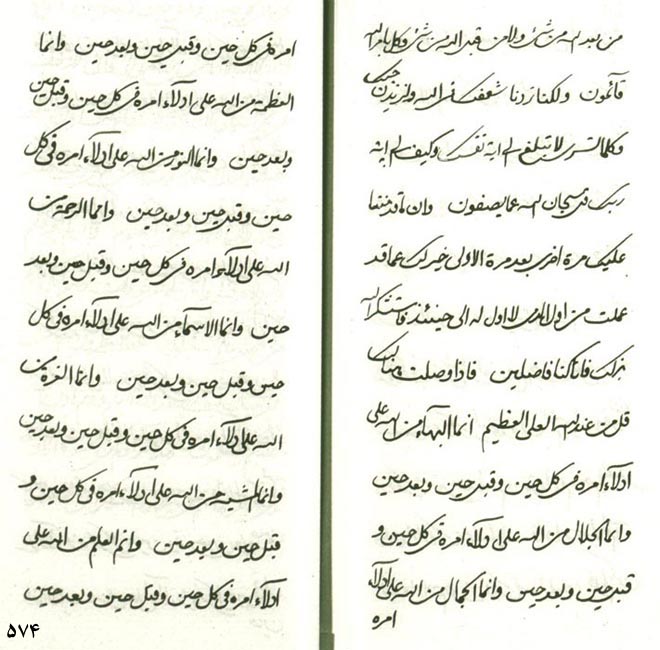 من بعد لم من شئ ولا من قبل الله من شئ وكل بامر الله
قائمون ولكنا زدنا شعفك في الله ولنزيدن حبك
فكلما تسرى لا تبلغ الى اية نفسك وكيف الى اية
ربك فسبحان الله عما يصفون وان ما قد مننا
عليك مرة اخرى بعد مرة الاولى خير لك عما قد
عملت من اول الذى لا اول له الى حينئذ فلتشكر الله
بذلك فانا كنا فاضلين فاذا وصلت هنالك
قل من عند الله العلى العظيم انما البهاء من الله على
ادلاء امره في كل حين وقبل حين وبعد حين
وانما الجلال من الله على ادلاء امره في كل حين و
قبل حين وبعد حين وانما الجمال من الله على ادلاء
امره
امره في كل حين وقبل حين وبعد حين وانما
العظمة من الله على ادلاء امره في كل حين وقبل حين
وبعد حين وانما النور من الله على ادلاء امره في كل
حين وقبل حين وبعد حين وانما الرحمة من
الله على ادلاء امره في كل حين وقبل حين وبعد
حين وانما الاسماء من الله على ادلاء امره في كل
حين وقبل حين وبعد حين وانما العزة من
الله على ادلاء امره في كل حين وقبل حين وبعد حين
وانما المشية من الله على ادلاء امره في كل حين و
قبل حين وبعد حين وانم العلم من الله على
ادلاء امره في كل حين وقبل حين وبعد حين
۵۷۴